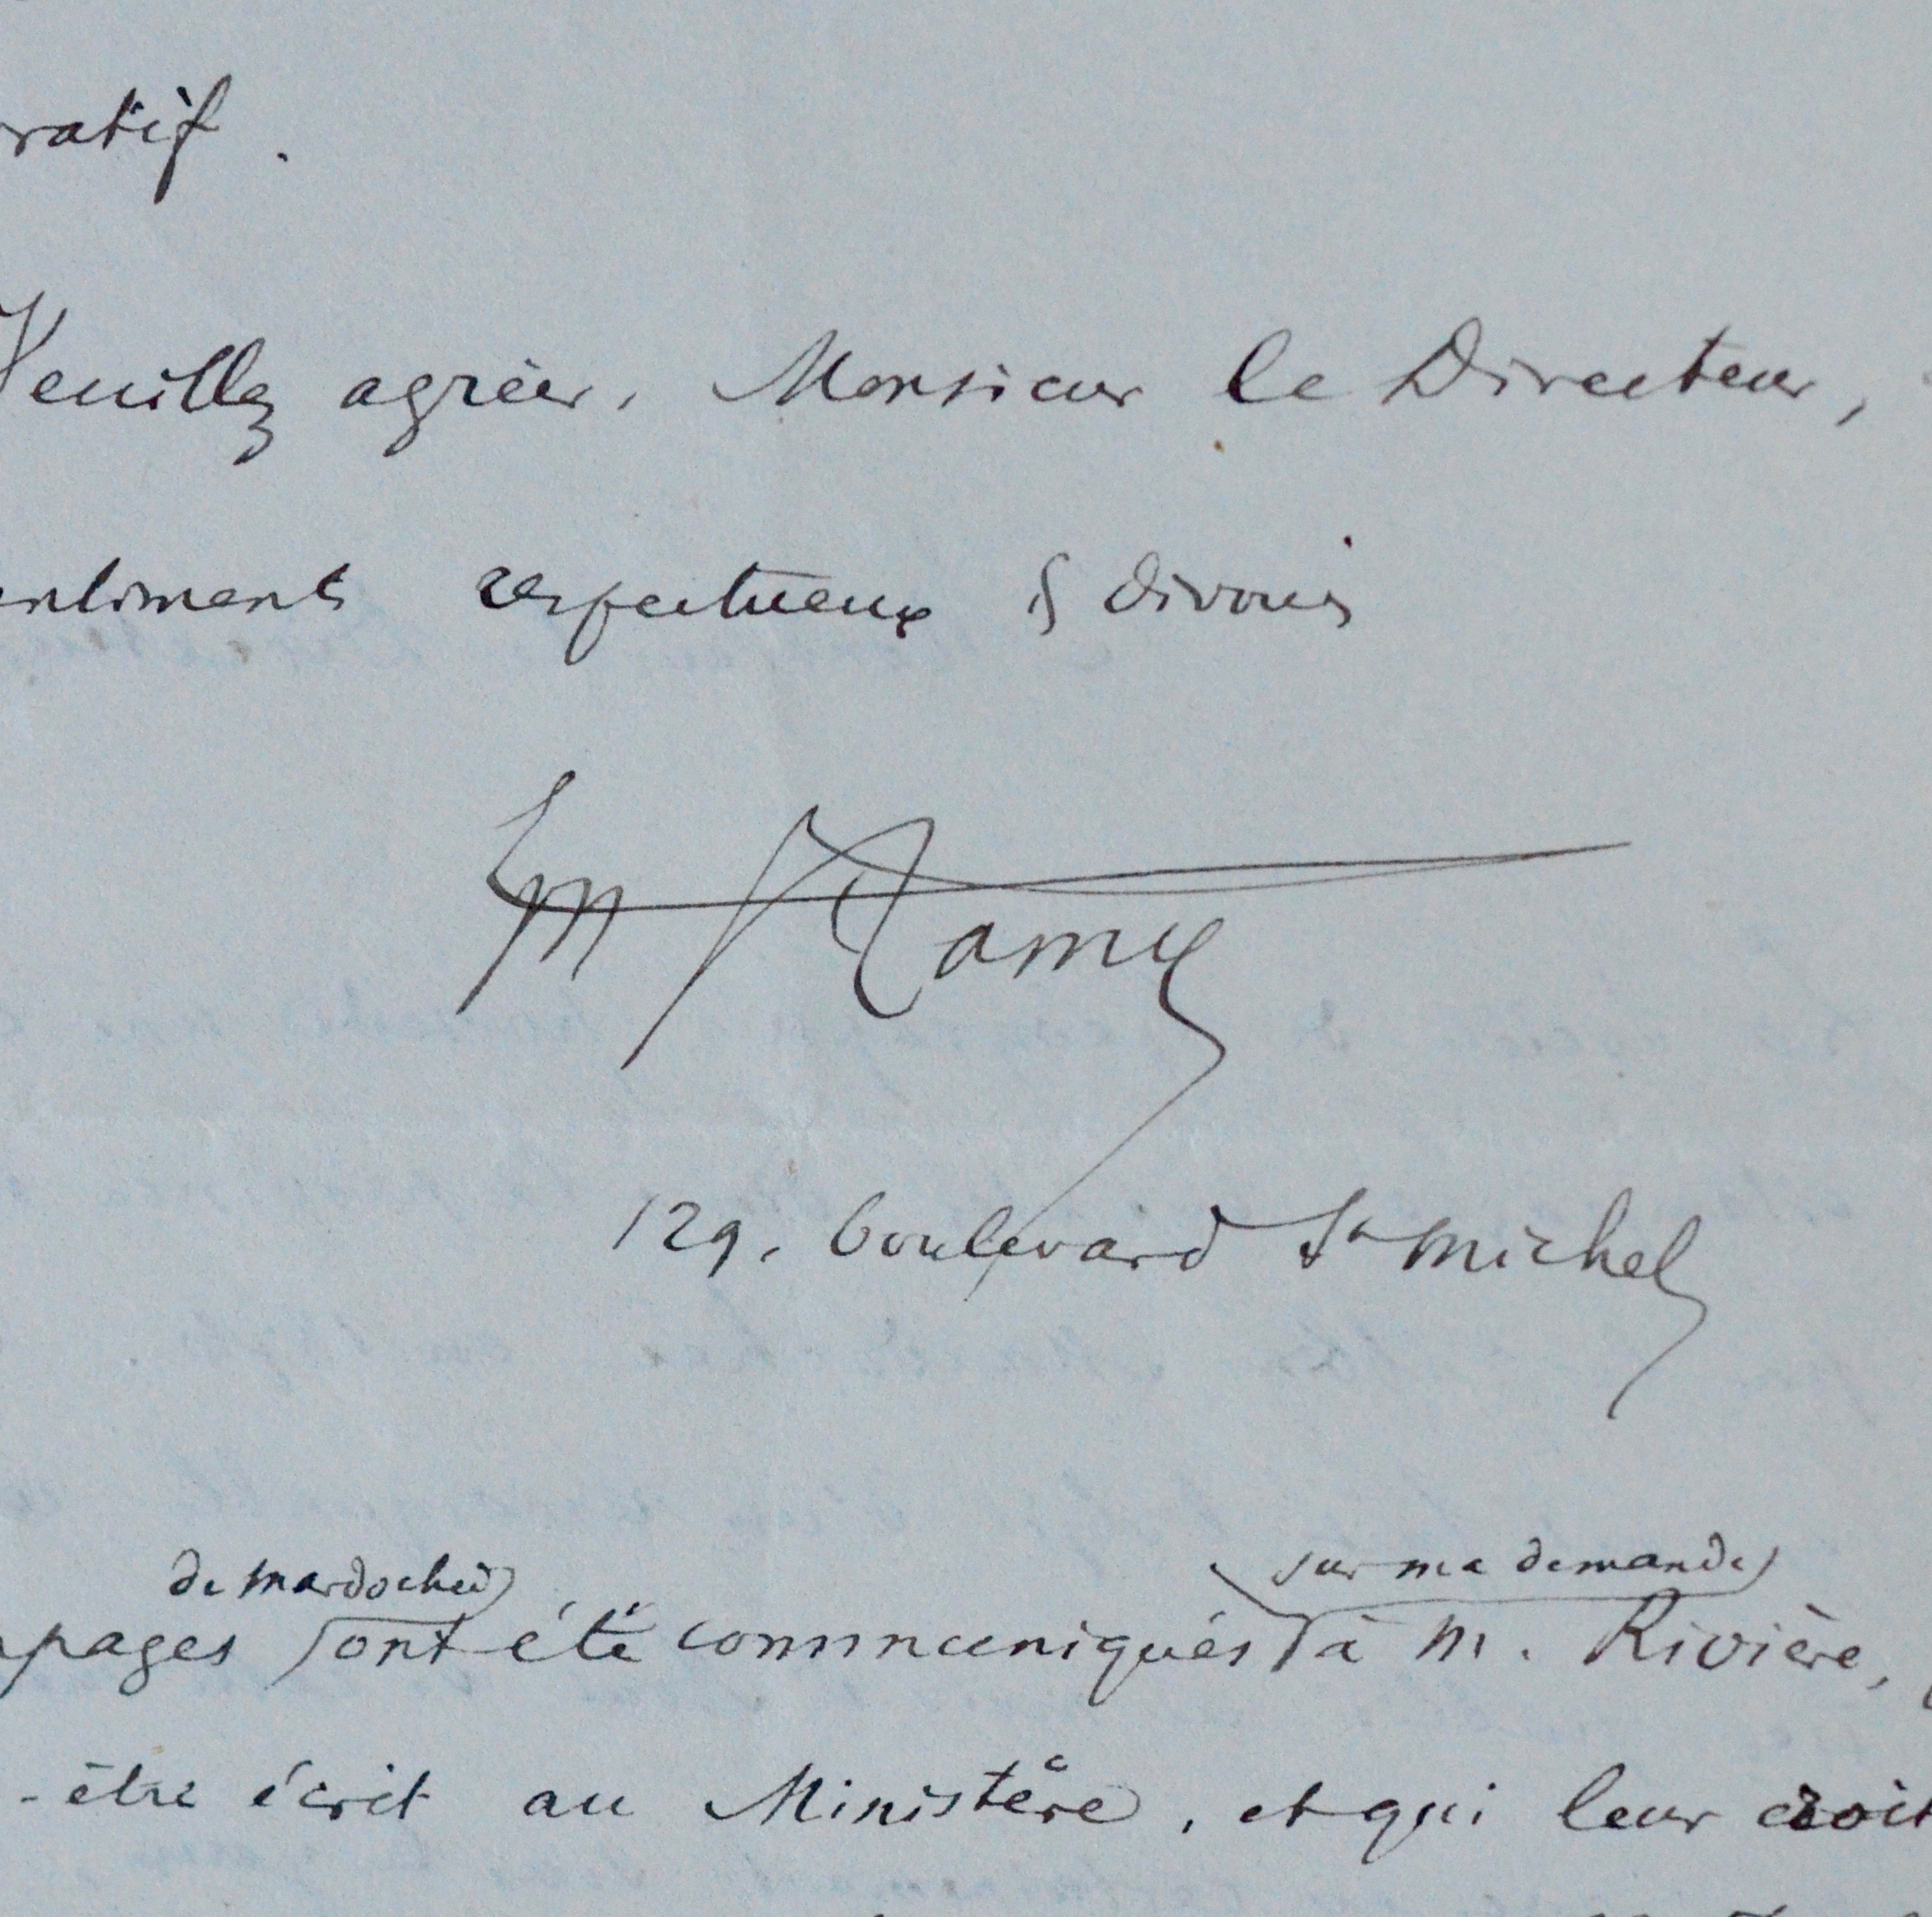 ratif.
Veuillez agréer, Monsieur le Directeur,
entiments respectueux & dévoués
129, boulevard St Michel
de mardochée sur ma demande
pages ont été communiqués à M. Rivière,
-être écrit au Ministère, et qui leur croit